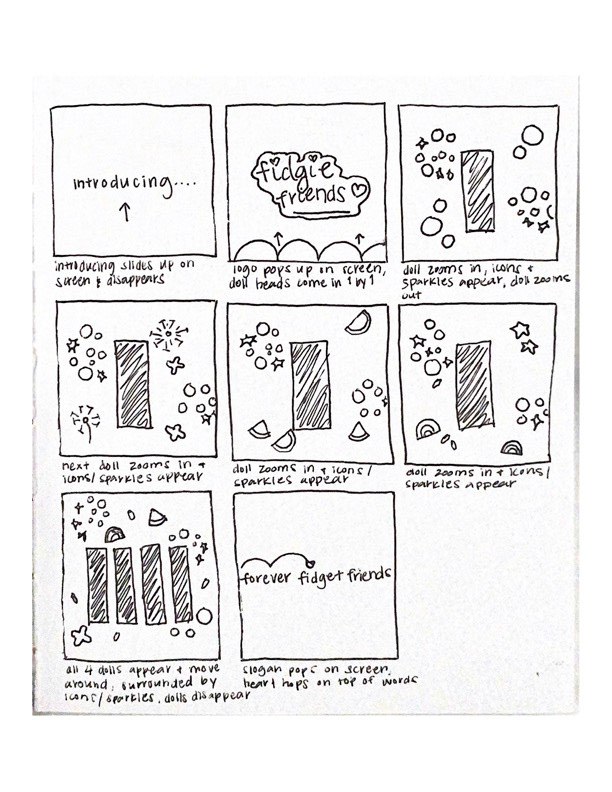 introducing....
introducing slides up on
screen & disappears
fidgie
friends
logo pops up on screen,
doll heads come in 1 by 1
doll zooms in, icons +
sparkles appear, doll zooms
out
next doll zooms in +
icons/sparkles appear
doll zooms in + icons/
sparkles appear
doll zooms in + icons/
sparkles appear
all 4 dolls appear + move
around, surrounded by
icons/sparkles. dolls disappear
forever fidget friends
slogan pops on screen,
heart hops on top of words